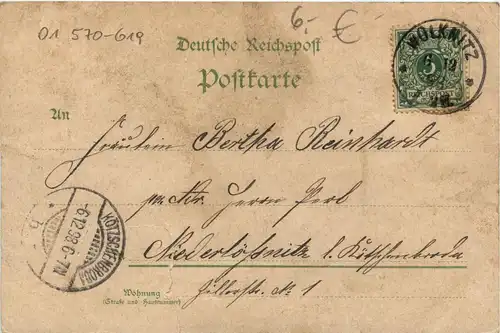 01 570-619
6,- €
Deutsche Reichspost
Postkarte
WOLKNITZ
6 12
5
An
Fräulein Bertha Reinhardt
Herrn Perl
Niederlößnitz b. Kötzschenbroda
KÖTZSCHENBRODA
-6.12.98.6-7N.
Wohnung
(Straße und Hausnummer)
№ 1